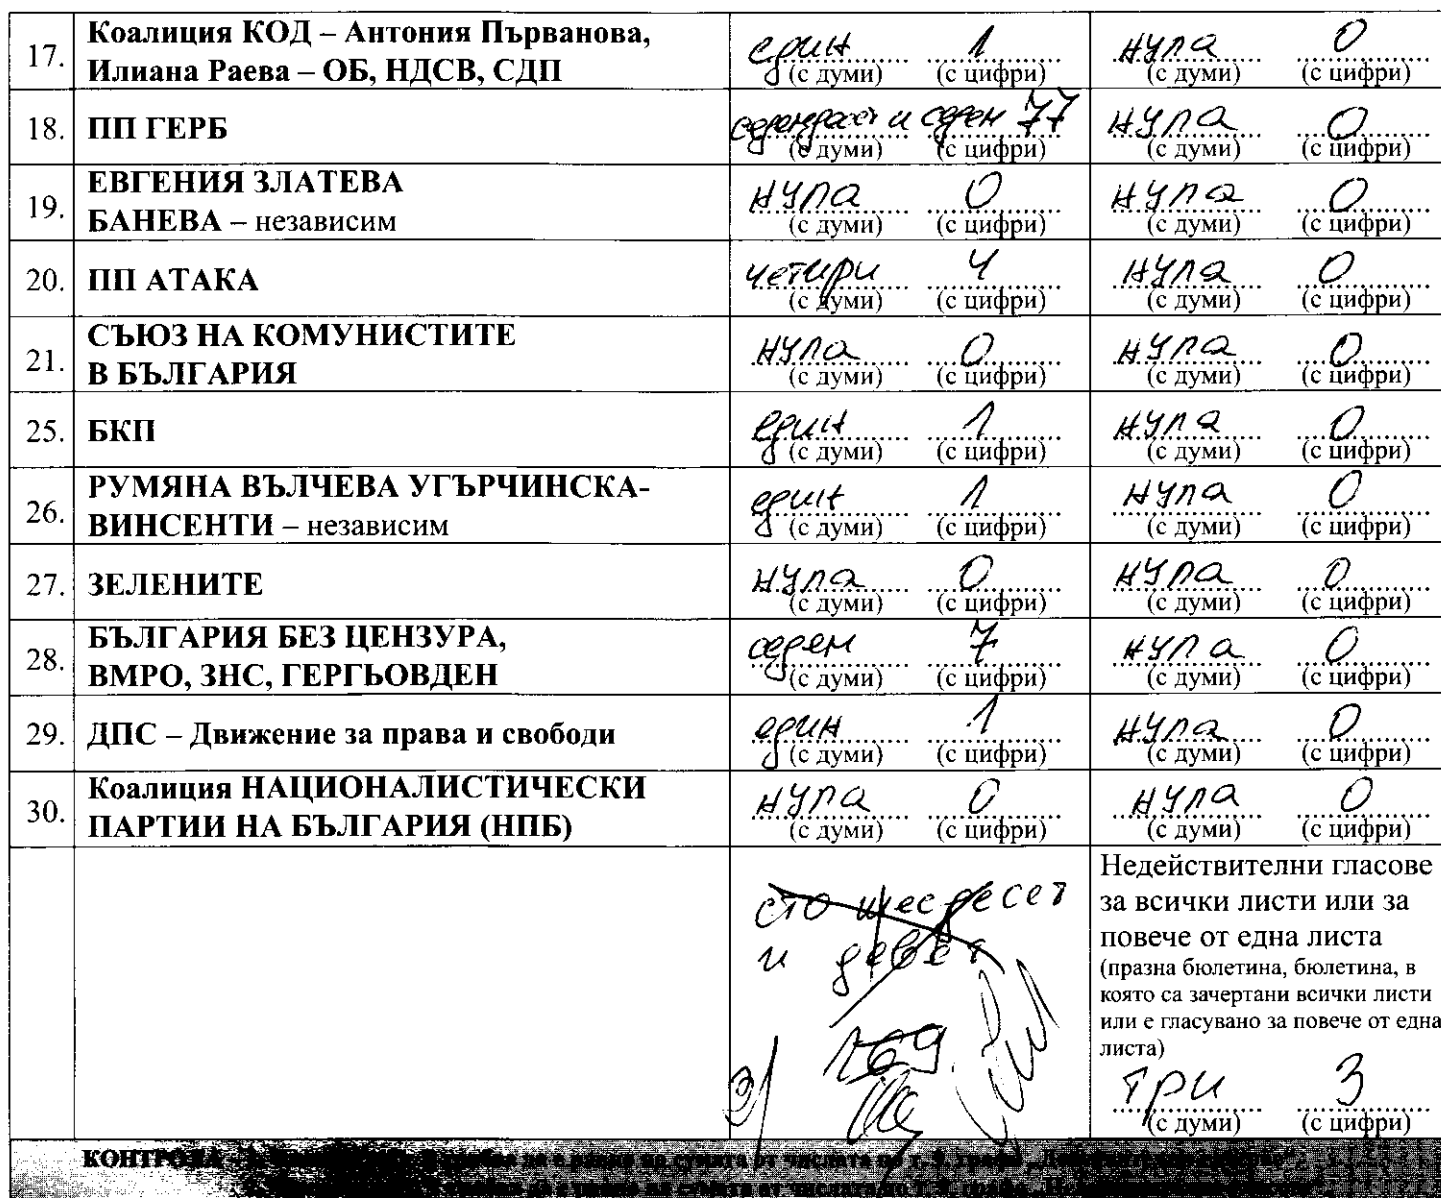 17. Коалиция КОД – Антония Първанова, Илиана Раева – ОБ, НДСВ, СДП един 1 нула 0
(с думи) (с цифри) (с думи) (с цифри)
18. ПП ГЕРБ седемдесет и седем 77 нула 0
(с думи) (с цифри) (с думи) (с цифри)
19. ЕВГЕНИЯ ЗЛАТЕВА БАНЕВА – независим нула 0 нула 0
(с думи) (с цифри) (с думи) (с цифри)
20. ПП АТАКА четири 4 нула 0
(с думи) (с цифри) (с думи) (с цифри)
21. СЪЮЗ НА КОМУНИСТИТЕ В БЪЛГАРИЯ нула 0 нула 0
(с думи) (с цифри) (с думи) (с цифри)
25. БКП един 1 нула 0
(с думи) (с цифри) (с думи) (с цифри)
26. РУМЯНА ВЪЛЧЕВА УГЪРЧИНСКА-ВИНСЕНТИ – независим един 1 нула 0
(с думи) (с цифри) (с думи) (с цифри)
27. ЗЕЛЕНИТЕ нула 0 нула 0
(с думи) (с цифри) (с думи) (с цифри)
28. БЪЛГАРИЯ БЕЗ ЦЕНЗУРА, ВМРО, ЗНС, ГЕРГЬОВДЕН седем 7 нула 0
(с думи) (с цифри) (с думи) (с цифри)
29. ДПС – Движение за права и свободи един 1 нула 0
(с думи) (с цифри) (с думи) (с цифри)
30. Коалиция НАЦИОНАЛИСТИЧЕСКИ ПАРТИИ НА БЪЛГАРИЯ (НПБ) нула 0 нула 0
(с думи) (с цифри) (с думи) (с цифри)
сто шесдесет
и девет
169
Недействителни гласове
за всички листи или за
повече от една листа
(празна бюлетина, бюлетина, в
която са зачертани всички листи
или е гласувано за повече от една
листа)
три 3
(с думи) (с цифри)
КОНТРОЛА